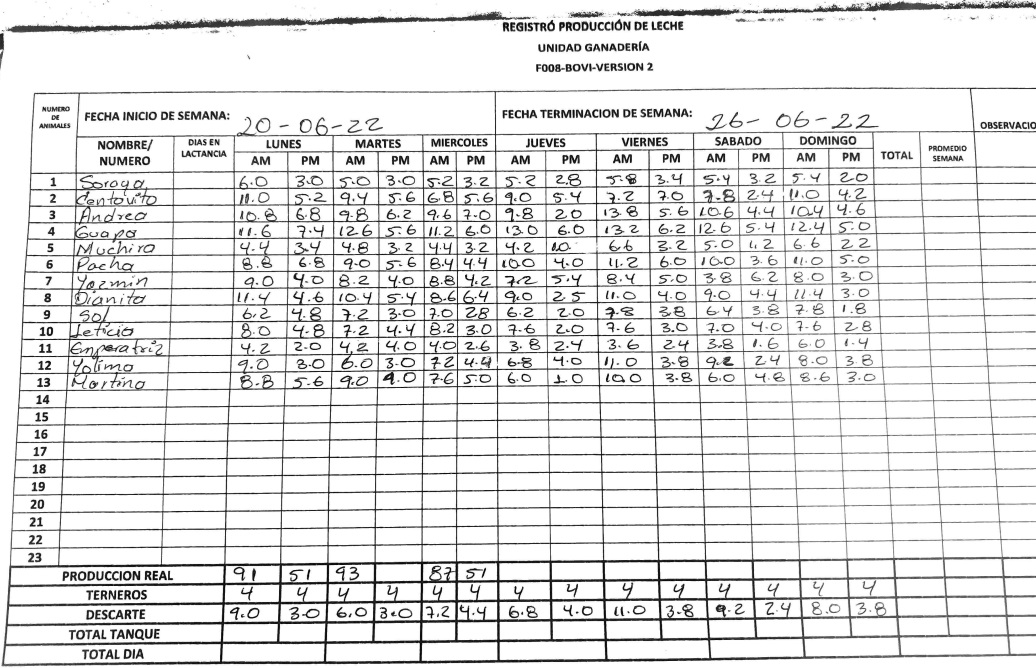 REGISTRÓ PRODUCCIÓN DE LECHE
UNIDAD GANADERÍA
F008-BOVI-VERSION 2
NUMERO DE ANIMALES FECHA INICIO DE SEMANA: 20-06-22 FECHA TERMINACION DE SEMANA: 26-06-22 OBSERVACIO
NOMBRE/ NUMERO DIAS EN LACTANCIA LUNES MARTES MIERCOLES JUEVES VIERNES SABADO DOMINGO TOTAL PROMEDIO SEMANA
AM PM AM PM AM PM AM PM AM PM AM PM AM PM
1 Soraya 6.0 3.0 5.0 3.0 5.2 3.2 5.2 2.8 5.8 3.4 5.4 3.2 5.4 2.0
2 Centavito 11.0 5.2 9.4 5.6 6.8 5.6 9.0 5.4 7.2 7.0 7.8 2.4 11.0 4.2
3 Andrea 10.8 6.8 9.8 6.2 9.6 7.0 9.8 2.0 13.8 5.6 10.6 4.4 10.4 4.6
4 Guapa 11.6 7.4 12.6 5.6 11.2 6.0 13.0 6.0 13.2 6.2 12.6 5.4 12.4 5.0
5 Muchira 4.4 3.4 4.8 3.2 4.4 3.2 4.2 1.0 6.6 3.2 5.0 1.2 6.6 2.2
6 Pacha 8.8 6.8 9.0 5.6 8.4 4.4 10.0 4.0 11.2 6.0 10.0 3.6 11.0 5.0
7 Yazmin 9.0 4.0 8.2 4.0 8.8 4.2 7.2 5.4 8.4 5.0 3.8 6.2 8.0 3.0
8 Dianita 11.4 4.6 10.4 5.4 8.6 6.4 9.0 2.5 11.0 4.0 9.0 4.4 11.4 3.0
9 Sol 6.2 4.8 7.2 3.0 7.0 2.8 6.2 2.0 7.8 3.8 6.4 3.8 7.8 1.8
10 Leticia 8.0 4.8 7.2 4.4 8.2 3.0 7.6 2.0 7.6 3.0 7.0 4.0 7.6 2.8
11 Emperatriz 4.2 2.0 4.2 4.0 4.0 2.6 3.8 2.4 3.6 2.4 3.8 1.6 6.0 1.4
12 Yolima 9.0 3.0 6.0 3.0 7.2 4.4 6.8 4.0 11.0 3.8 9.2 2.4 8.0 3.8
13 Martina 8.8 5.6 9.0 4.0 7.6 5.0 6.0 1.0 10.0 3.8 6.0 4.8 8.6 3.0
14
15
16
17
18
19
20
21
22
23
PRODUCCION REAL 91 51 93 87 51
TERNEROS 4 4 4 4 4 4 4 4 4 4 4 4 4 4
DESCARTE 9.0 3.0 6.0 3.0 7.2 4.4 6.8 4.0 11.0 3.8 9.2 2.4 8.0 3.8
TOTAL TANQUE
TOTAL DIA